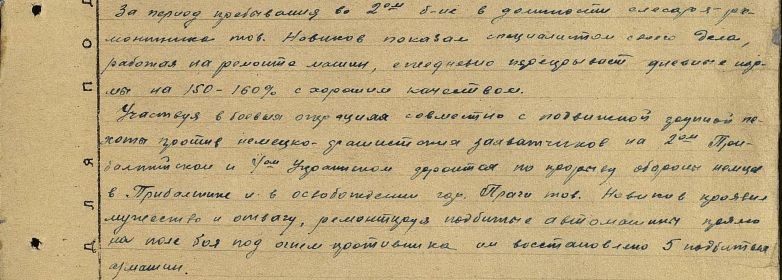 За период пребывания во 2ом б-не в должности слесаря-ре-
монтника тов. Новиков показал специалистом своего дела,
работая на ремонте машин, ежедневно перекрывает дневные нор-
мы на 150-160% с хорошим качеством.
Участвуя в боевых операциях совместно с подвижной группой пе-
хоты против немецко-фашистских захватчиков на 2ом При-
балтийском и 4ом Украинском фронтах по прорыву обороны немцев
в Прибалтике и в освобождении гор. Праги тов. Новиков проявил
мужество и отвагу, ремонтируя подбитые автомашины прямо
на поле боя под огнем противника им восстановлено 5 подбитых
а/машин.
ДЛЯ ПОД